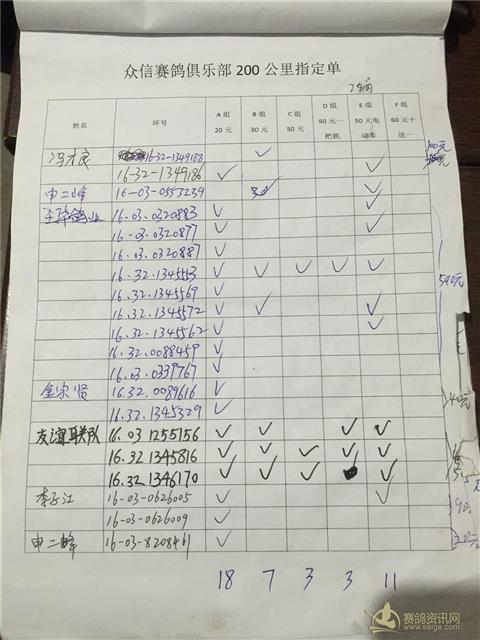 众信赛鸽俱乐部 200 公里指定单
姓名 环号 A 组 20 元 B 组 30 元 C 组 50 元 D 组 50 元一把抓 E 组 50 元电动车 F 组 60 元十进一
16-32-1349188 ✓
16-32-1349186 ✓ ✓
申二峰 16-03-0553239 ✓
16-03-0320883 ✓ ✓
16-03-0320877 ✓ ✓
16.03.0320887 ✓
16.32.1345553 ✓ ✓ ✓ ✓ ✓
16.32.1345569 ✓
16.32.1345572 ✓ ✓ ✓
16.32.1345562 ✓ ✓
16.32.0088459 ✓
16.03.0339767 ✓
金宗贤 16.32.0089616 ✓
16.32.1345329 ✓
友谊联队 16.03 1255156 ✓ ✓ ✓ ✓
16.32 1345816 ✓ ✓ ✓ ✓ ✓
16.32 1346170 ✓ ✓ ✓ ✓
李子江 16-03-0626005 ✓ ✓
16-03-0626009 ✓
申二峰 16-03-8208461 ✓
18 7 3 3 11
赛鸽资讯网
www.saige.com